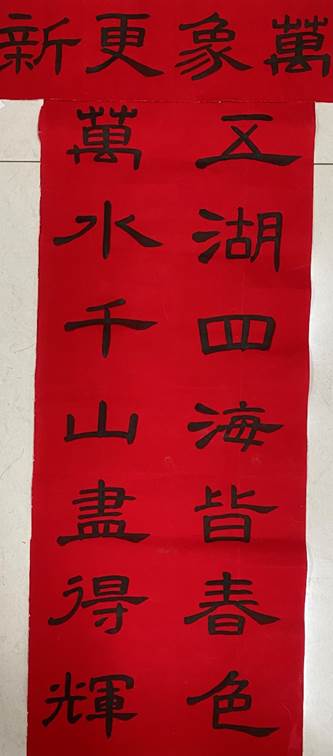 萬象更新
五湖四海皆春色
萬水千山盡得輝